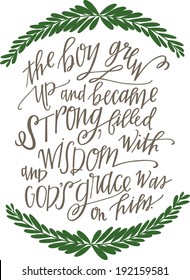 the boy grew
up and became
STRONG, filled
with
WISDOM
and
GOD'S grace was
on him
shutterstock.com · 192159581